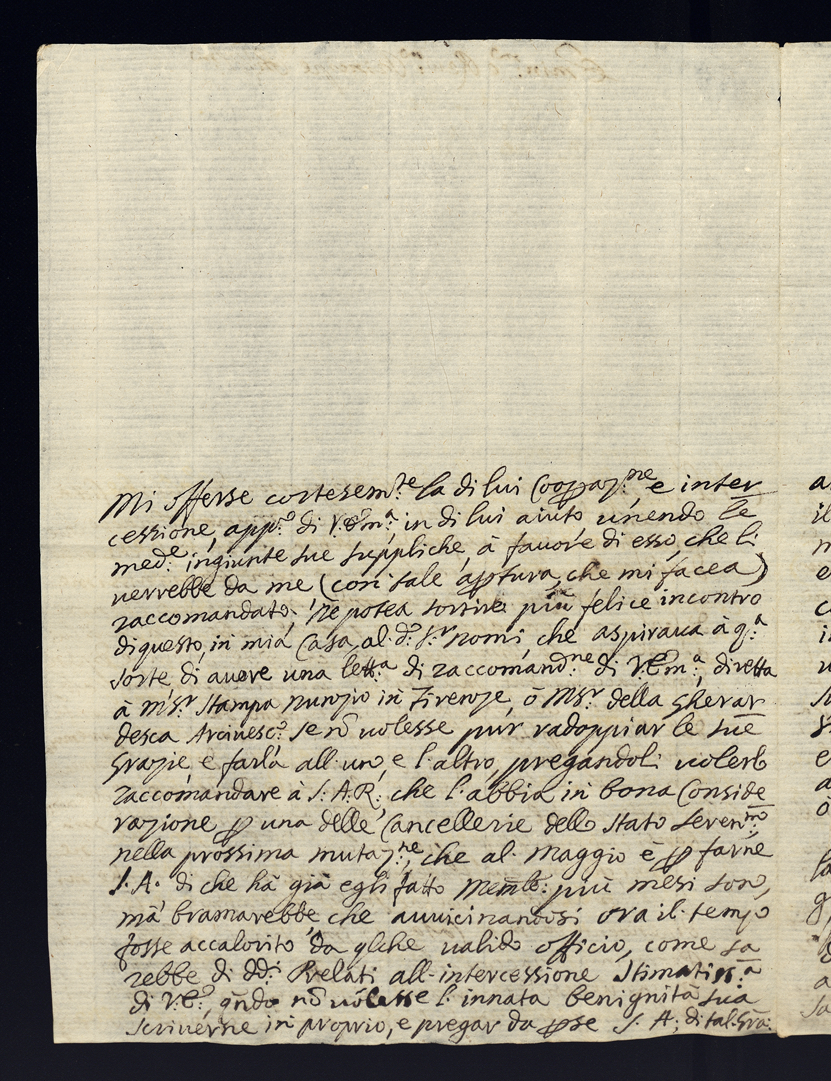 Mi offerse cortesem.te la di lui Cooperaz.ne e inter
cessione, app.o di V. Em.a in di lui aiuto unendo le
med.e ingiunte sue suppliche, à favore di esso, che li
verrebbe da me (con tale apertura, che mi facea)
raccomandato; Ne potea sortire più felice incontro
di questo, in mia Casa, al d.o S.r nomi, che aspirava à q.a
sorte di avere una lett.a di raccomand.ne di V. Em.a, diretta
à Ms.r Stampa Nunzio in Firenze, ò Ms.r della Gherar
desca Arcivesc.o, se nō volesse pur radoppiar le sue
Grazie e farla all'uno, e l'altro, pregandoli volerlo
raccomandare à S.A.R. che l'abbia in bona Conside
razione p una delle Cancellerie dello Stato Seren.mo
nella prossima mutaz.ne, che al Maggio è p farne
S.A. di che hà già egli fatto Memle: più mesi sono,
mà bramarebbe, che avvicinandosi ora il tempo
fosse accalorito da qlche valido officio, come sa
rebbe di dd.i Prelati all'intercessione Stimatiss.a
di V.E., qndo nō volesse l'innata benignità sua
scriverne in proprio, e pregar da pse S. A; di tal Gra: